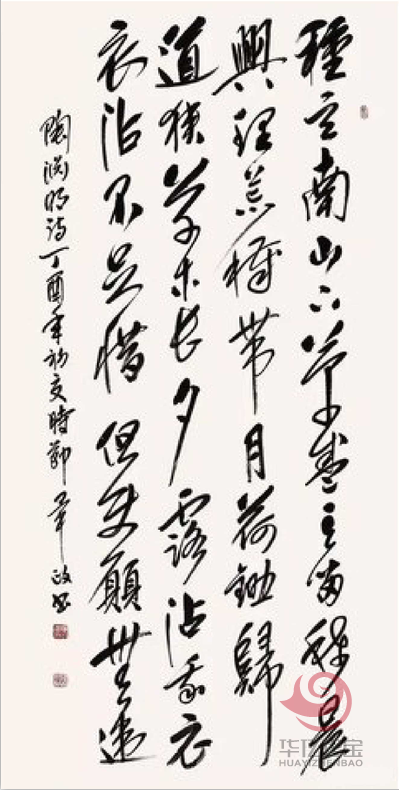 種豆南山下草盛豆苗稀晨
興理荒穢帶月荷鋤歸
道狹草木長夕露沾我衣
衣沾不足惜但使願無違
陶淵明詩丁酉年初夏時節 政書
HUAYIZHENBAO